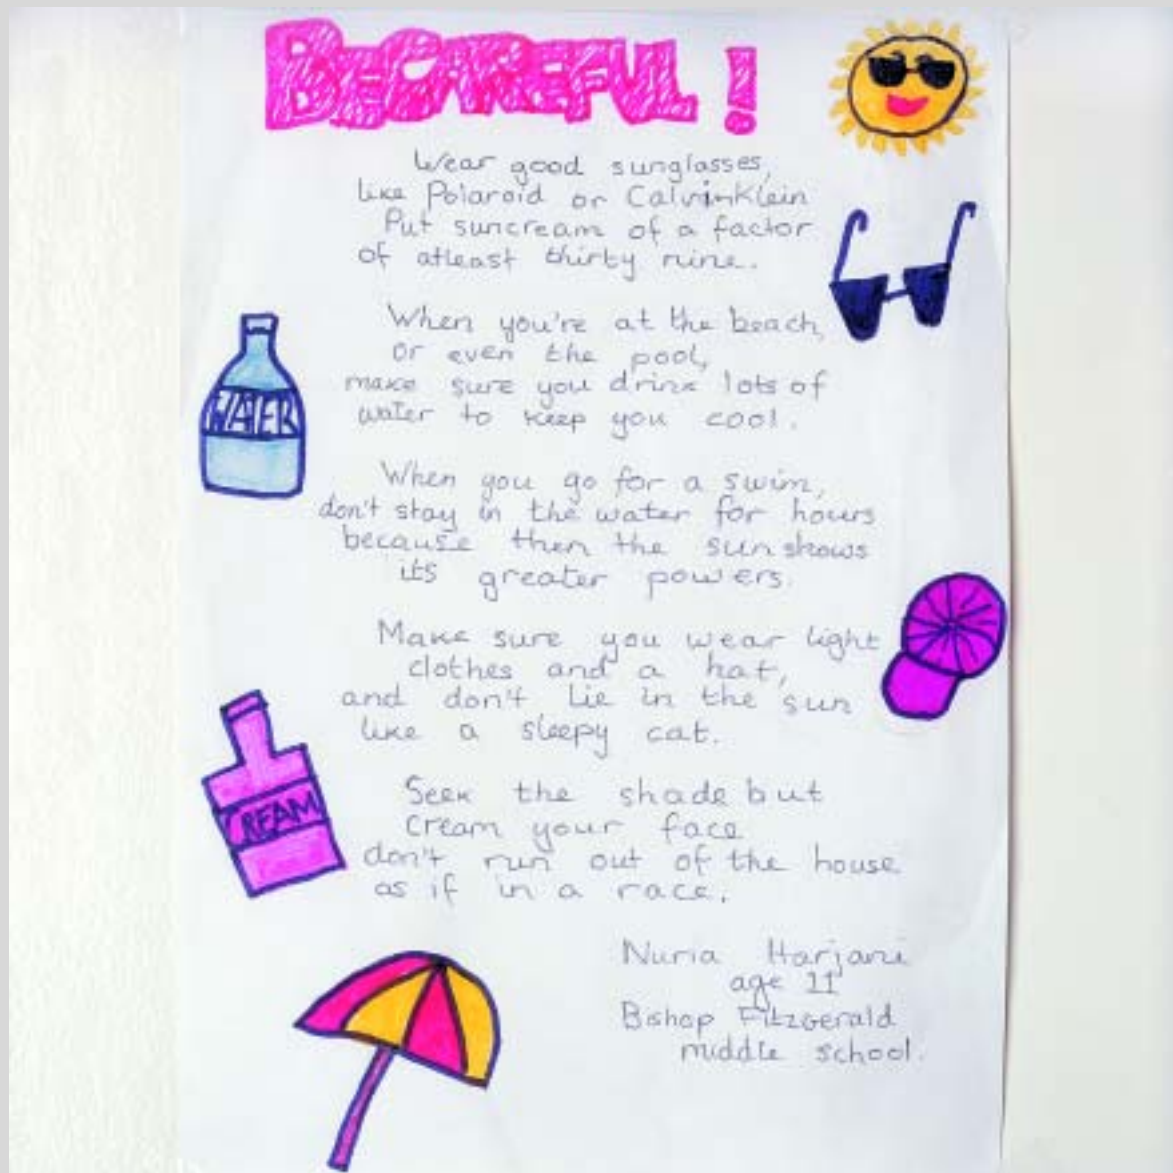 BECAREFUL!
Wear good sunglasses,
like Polaroid or CalvinKlein
Put suncream of a factor
of atleast thirty nine.
When you're at the beach,
or even the pool,
make sure you drink lots of
water to keep you cool.
WATER
When you go for a swim,
don't stay in the water for hours
because then the sun shows
its greater powers.
Make sure you wear light
clothes and a hat,
and don't lie in the sun
like a sleepy cat.
Seek the shade but
cream your face
don't run out of the house
as if in a race.
CREAM
Nuria Harjani
age 11
Bishop Fitzgerald
middle school.